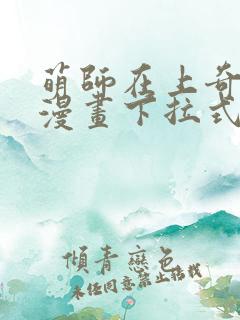 萌師在上奇
漫畫下拉式
傾青戀色
未经同意禁止转载